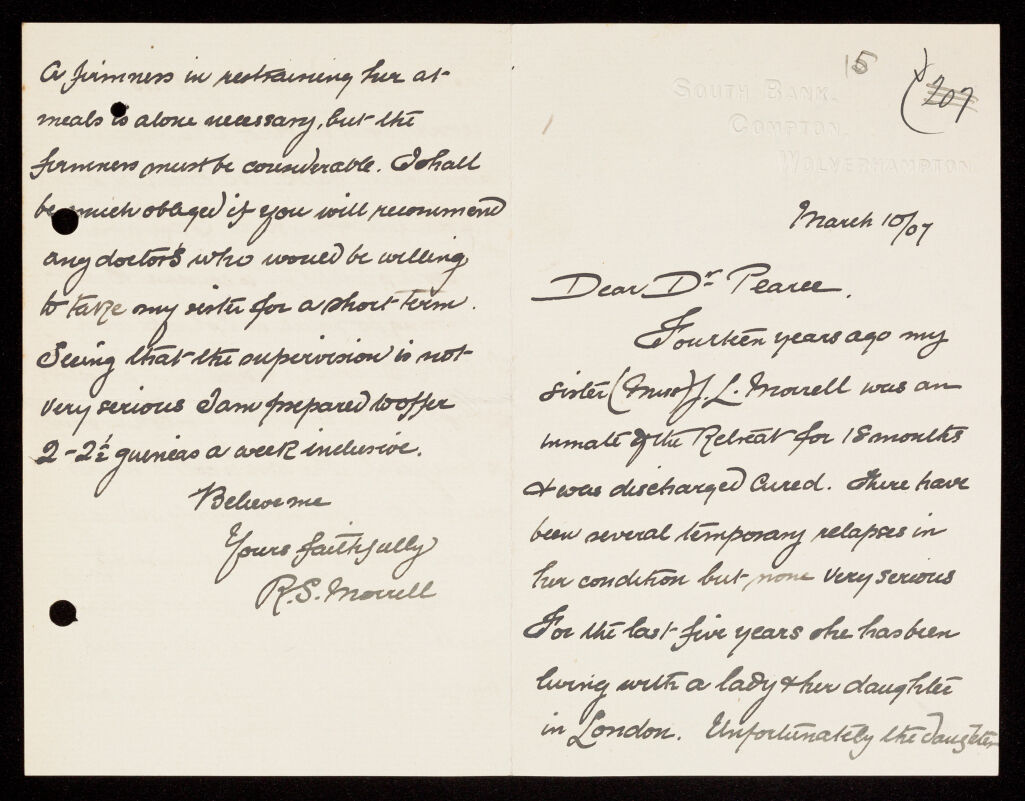 15
207
SOUTH BANK.
COMPTON.
WOLVERHAMPTON
March 10/07
Dear Dr Pearce,
Fourteen years ago my
sister (Miss) J. L. Morrell was an
inmate of the Retreat for 18 months
& was discharged cured. There have
been several temporary relapses in
her condition but none very serious
For the last five years she has been
living with a lady & her daughter
in London. Unfortunately the daughter
A firmness in restraining her at
meals is alone necessary, but the
firmness must be considerable. I shall
be much obliged if you will recommend
any doctors who would be willing
to take my sister for a short term.
Seeing that the supervision is not
very serious I am prepared to offer
2 - 2½ guineas a week inclusive.
Believe me
Yours faithfully
R. S. Morrell